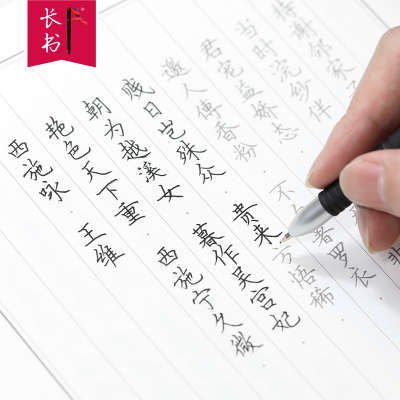 长书
西施咏 王维
艳色天下重 西施宁久微
朝为越溪女 暮作吴宫妃
贱日岂殊众 贵来方悟稀
邀人傅香粉 不著罗衣
君宠益娇态 非
当时浣纱伴
邻家子